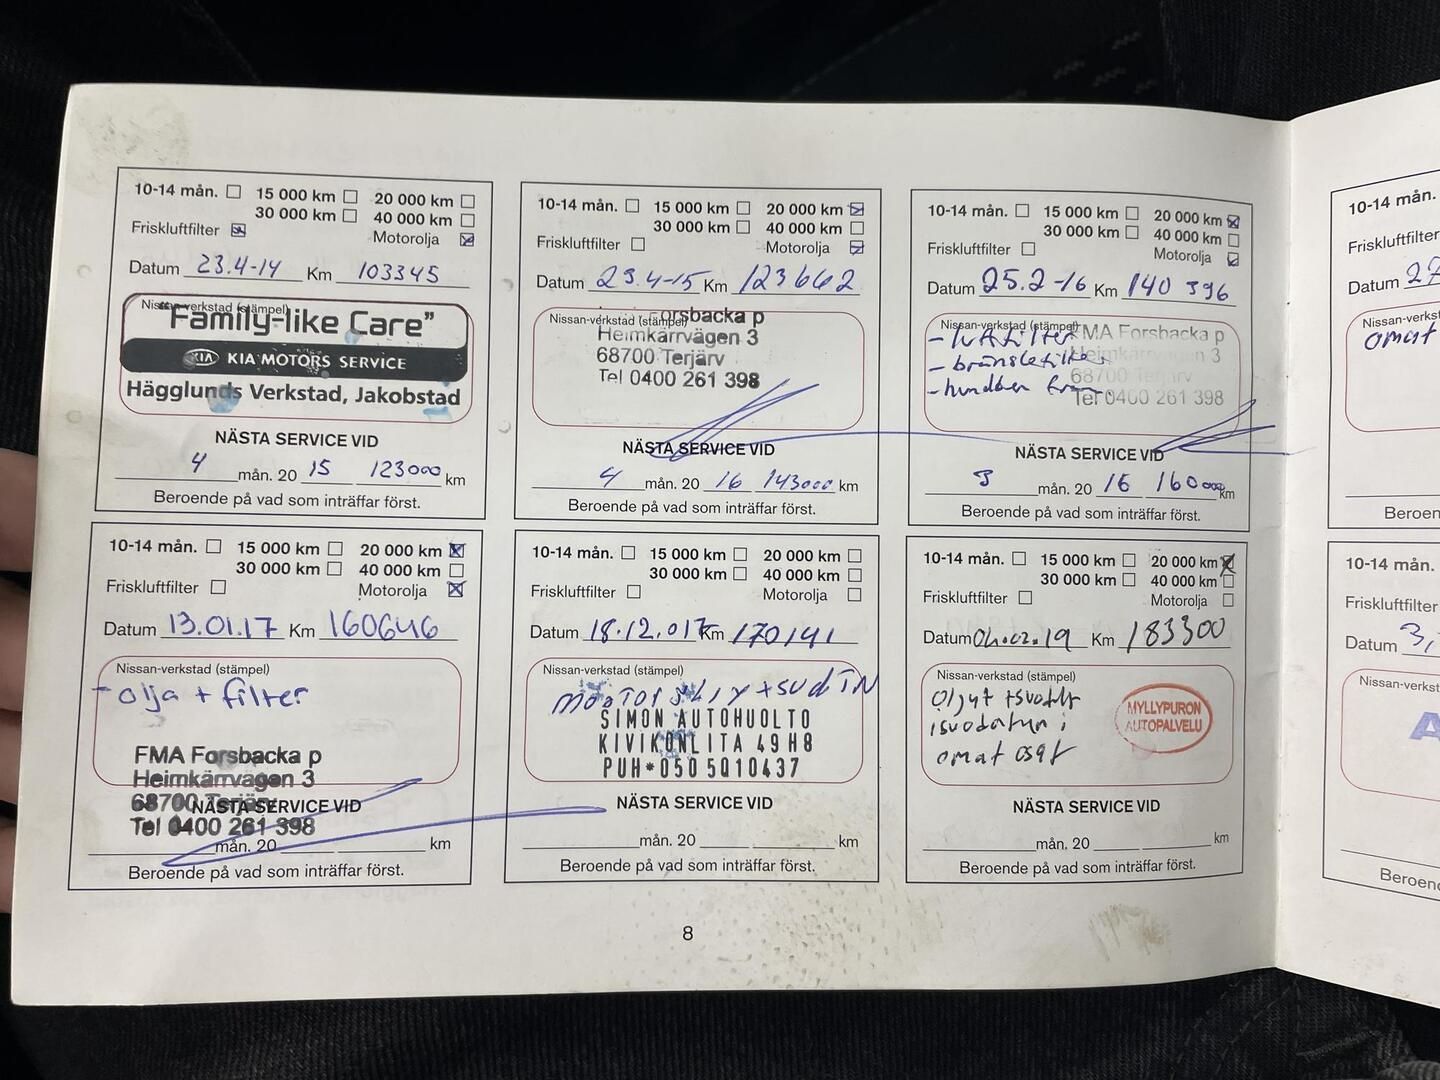 10-14 mån. 15 000 km 20 000 km
30 000 km 40 000 km
Friskluftfilter Motorolja
Datum 23.4-14 Km 103345
Nissan-verkstad (stämpel)
"Family-like Care"
KIA KIA MOTORS SERVICE
Hägglunds Verkstad, Jakobstad
NÄSTA SERVICE VID
4 mån. 20 15 123000 km
Beroende på vad som inträffar först.
10-14 mån. 15 000 km 20 000 km
30 000 km 40 000 km
Friskluftfilter Motorolja
Datum 23.4-15 Km 123662
Nissan-verkstad (stämpel)
Forsbacka p
Heimkärrvägen 3
68700 Terjärv
Tel 0400 261 398
NÄSTA SERVICE VID
4 mån. 20 16 143000 km
Beroende på vad som inträffar först.
10-14 mån. 15 000 km 20 000 km
30 000 km 40 000 km
Friskluftfilter Motorolja
Datum 25.2-16 Km 140 396
Nissan-verkstad (stämpel)
FMA Forsbacka p
Heimkärrvägen 3
68700 Terjärv
Tel 0400 261 398
- luftfilter
- bränslefilter
NÄSTA SERVICE VID
3 mån. 20 16 160000 km
Beroende på vad som inträffar först.
10-14 mån. 15 000 km 20 000 km
30 000 km 40 000 km
Friskluftfilter Motorolja
Datum 13.01.17 Km 160646
Nissan-verkstad (stämpel)
- olja + filter
FMA Forsbacka p
Heimkärrvägen 3
68700 Terjärv
Tel 0400 261 398
NÄSTA SERVICE VID
mån. 20 km
Beroende på vad som inträffar först.
10-14 mån. 15 000 km 20 000 km
30 000 km 40 000 km
Friskluftfilter Motorolja
Datum 18.12.017 Km 170141
Nissan-verkstad (stämpel)
SIMON AUTOHUOLTO
KIVIKONLITA 49H8
PUH*050 5010437
NÄSTA SERVICE VID
mån. 20 km
Beroende på vad som inträffar först.
10-14 mån. 15 000 km 20 000 km
30 000 km 40 000 km
Friskluftfilter Motorolja
Datum 04.02.19 Km 183300
Nissan-verkstad (stämpel)
Öljyt + suodatt
isuodatun i
omat osat
MYLLYPURON
AUTOPALVELU
NÄSTA SERVICE VID
mån. 20 km
Beroende på vad som inträffar först.
8
10-14 mån.
Friskluftfilter
Datum
Nissan-verkst
omat
Beroen
10-14 mån.
Friskluftfilter
Datum 3,
Nissan-verkst
A
Beroend